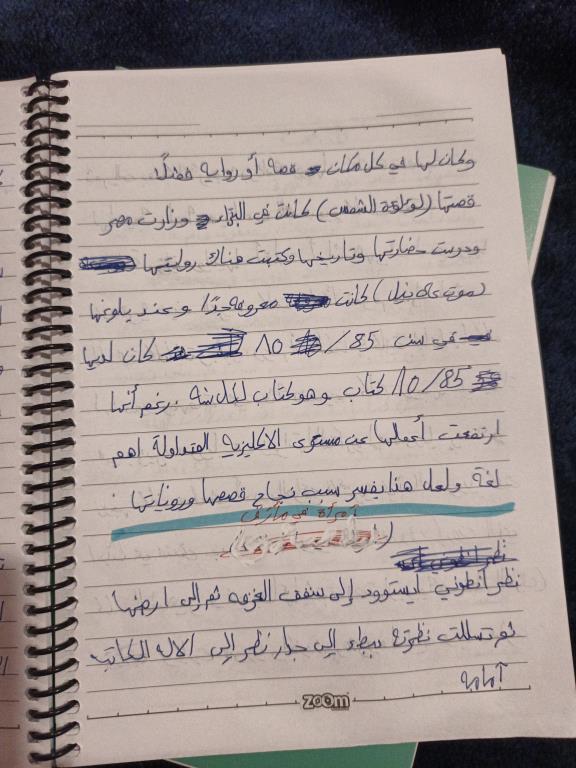 وكان لها في كل مكان قصة أو رواية فمثلًا
قصتها (لؤلؤة الشمس) كانت في البتراء وزارت مصر
ودرست حضارتها وتاريخها وكتبت هناك روايتها
(موت على نيل) كانت معروفه جدًا وعند بلوغها
في سن 85/ ٨٥ كان لديها
٨٥/85 كتاب وهو كتاب لكل سنة. رغم أنها
ارتفعت أعمالها عن مستوى الانكليزيه المتداولة اهم
لغة ولعل هذا يفسر سبب نجاح قصصها ورواياتها
امرأة في مأزق
نظر انطوني ايستوود إلى سقف الغرفه ثم إلى ارضها
ثم تسللت نظرته ببطء إلى جدار نظر إلى الاله الكاتبه
أمامه
zoom